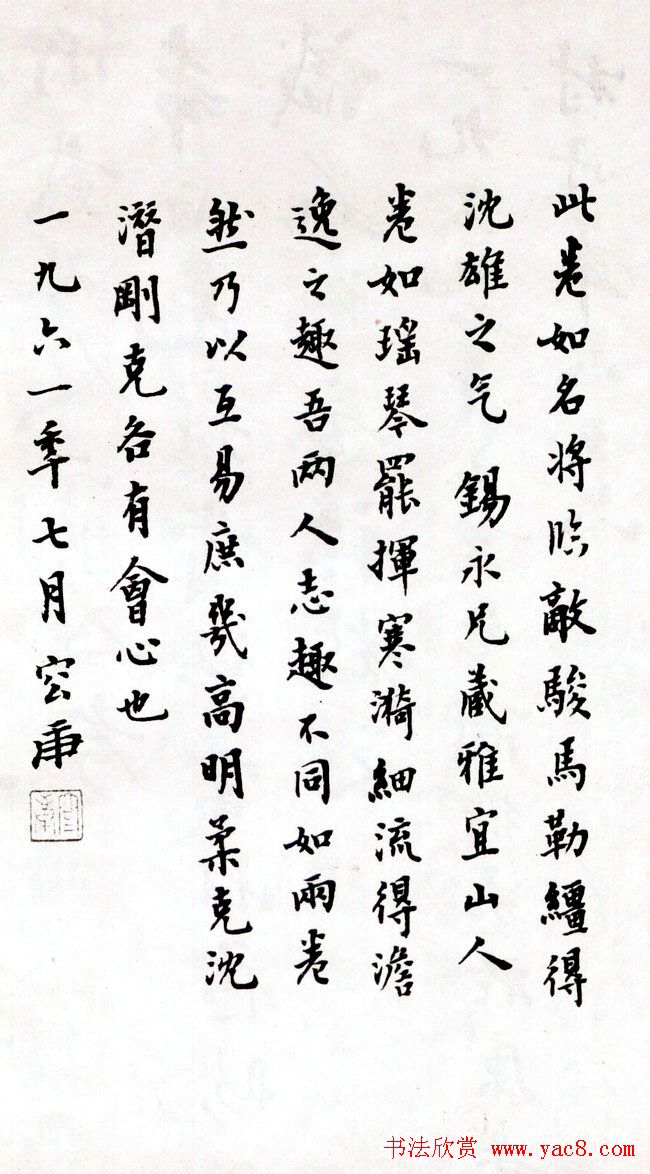 此卷如名将临敵駿馬勒繮得
沈雄之气 錫永兄藏雅宜山人
卷如瑶琴罷揮寒漪細流得澹
逸之趣吾兩人志趣不同如兩卷
然乃以互易庶幾高明柔克沈
潛剛克各有會心也
一九六一年七月 容庚
书法欣赏 www.yac8.com